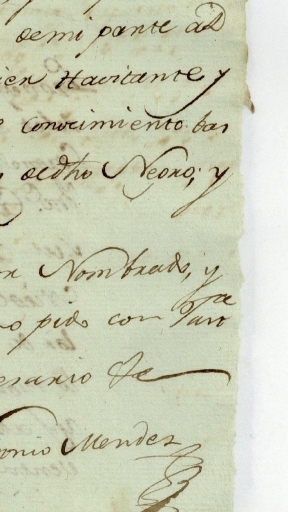 demi parte a D
ien Havitante y
conocimiento bas
dedho Negro; y
or Nombrado, y
o pido con Jura
esario &c
onio Mendez